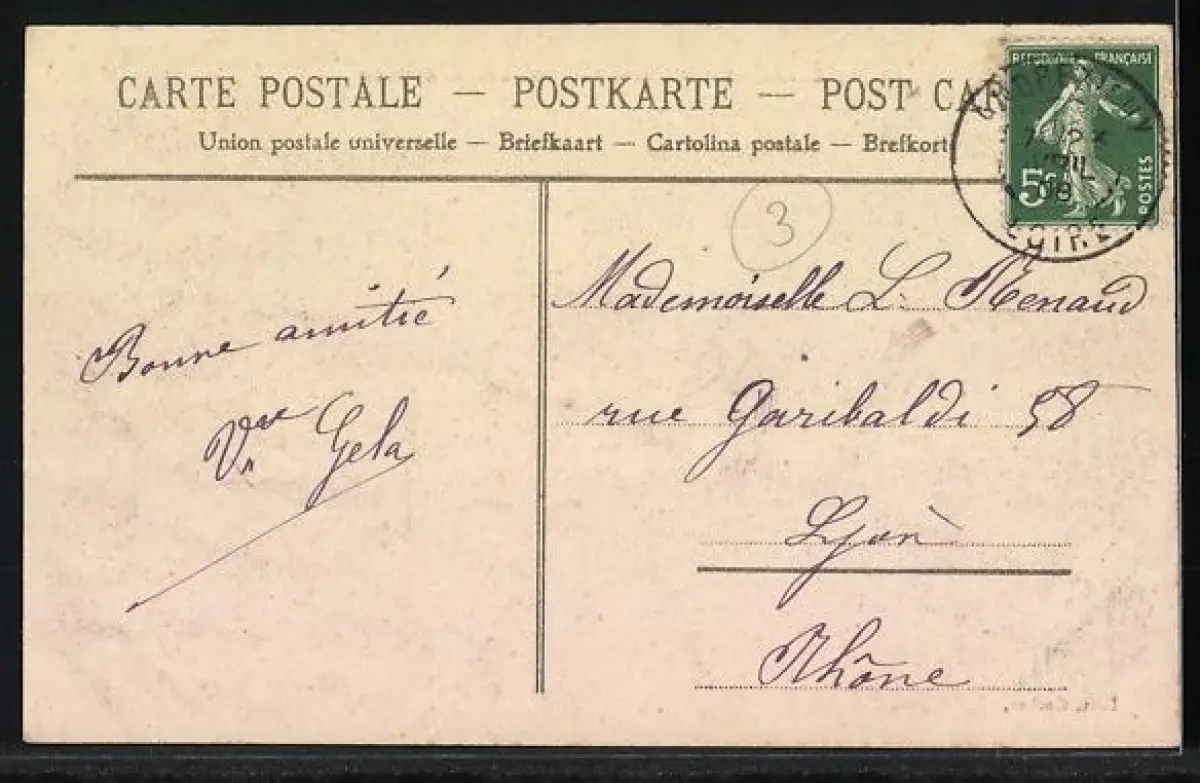 CARTE POSTALE — POSTKARTE — POST CAR
Union postale universelle — Briefkaart — Cartolina postale — Brefkort
REPUBLIQUE FRANÇAISE
5c
POSTES
LOIRE
3
Bonne amitié
Vve Gela
Mademoiselle L. Renaud
rue Garibaldi 58
Lyon
Rhône